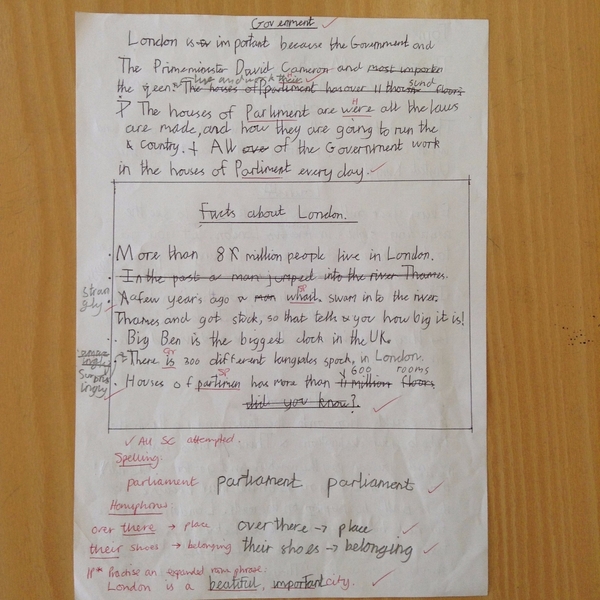 Goverment ✓
London is important because the Government and
The Primeminster David Cameron and most importen
live and work there
the Queen. The houses of Parliment has over 11 thousund floors
The houses of Parliment are were all the laws
are made, and how they are going to run the
& country. + All of the Government work
in the houses of Partiment every day. ✓
Facts about London.
• More than 8 million people live in London.
• In the past a man jumped into the river Thames.
stran
gly
sp
• A afew year's ago a man whail swam into the river
Thames and got stock, so that tells you how big it is!
• Big Ben is the biggest clock in the UK.
gr
• There is 300 different langages spock, in London.
amaz
ingly
Surpris
ingly
sp
600 rooms
• Houses of partimen has more than 11 million floors
did you know? ✓
✓ All SC attempted.
Spelling:
parliament parliament parliament ✓
Homophones:
over there → place over there → place ✓
their shoes → belonging their shoes → belonging ✓
Practise an expanded noun phrase:
London is a beatiful, important city. ✓